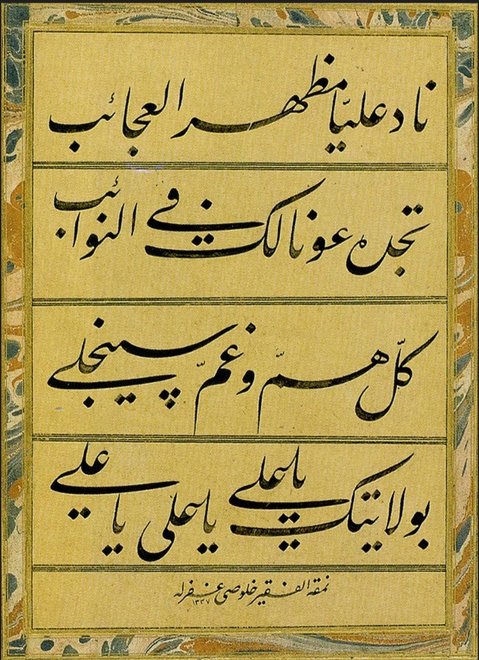 ناد علیّا مظهر العجائب
تجده عونا لك في النوائب
كلّ همّ و غمّ سينجلي
بولايتك يا علي يا علي يا علي
نمقه الفقير خلوصی غفرله
١٣٣٧